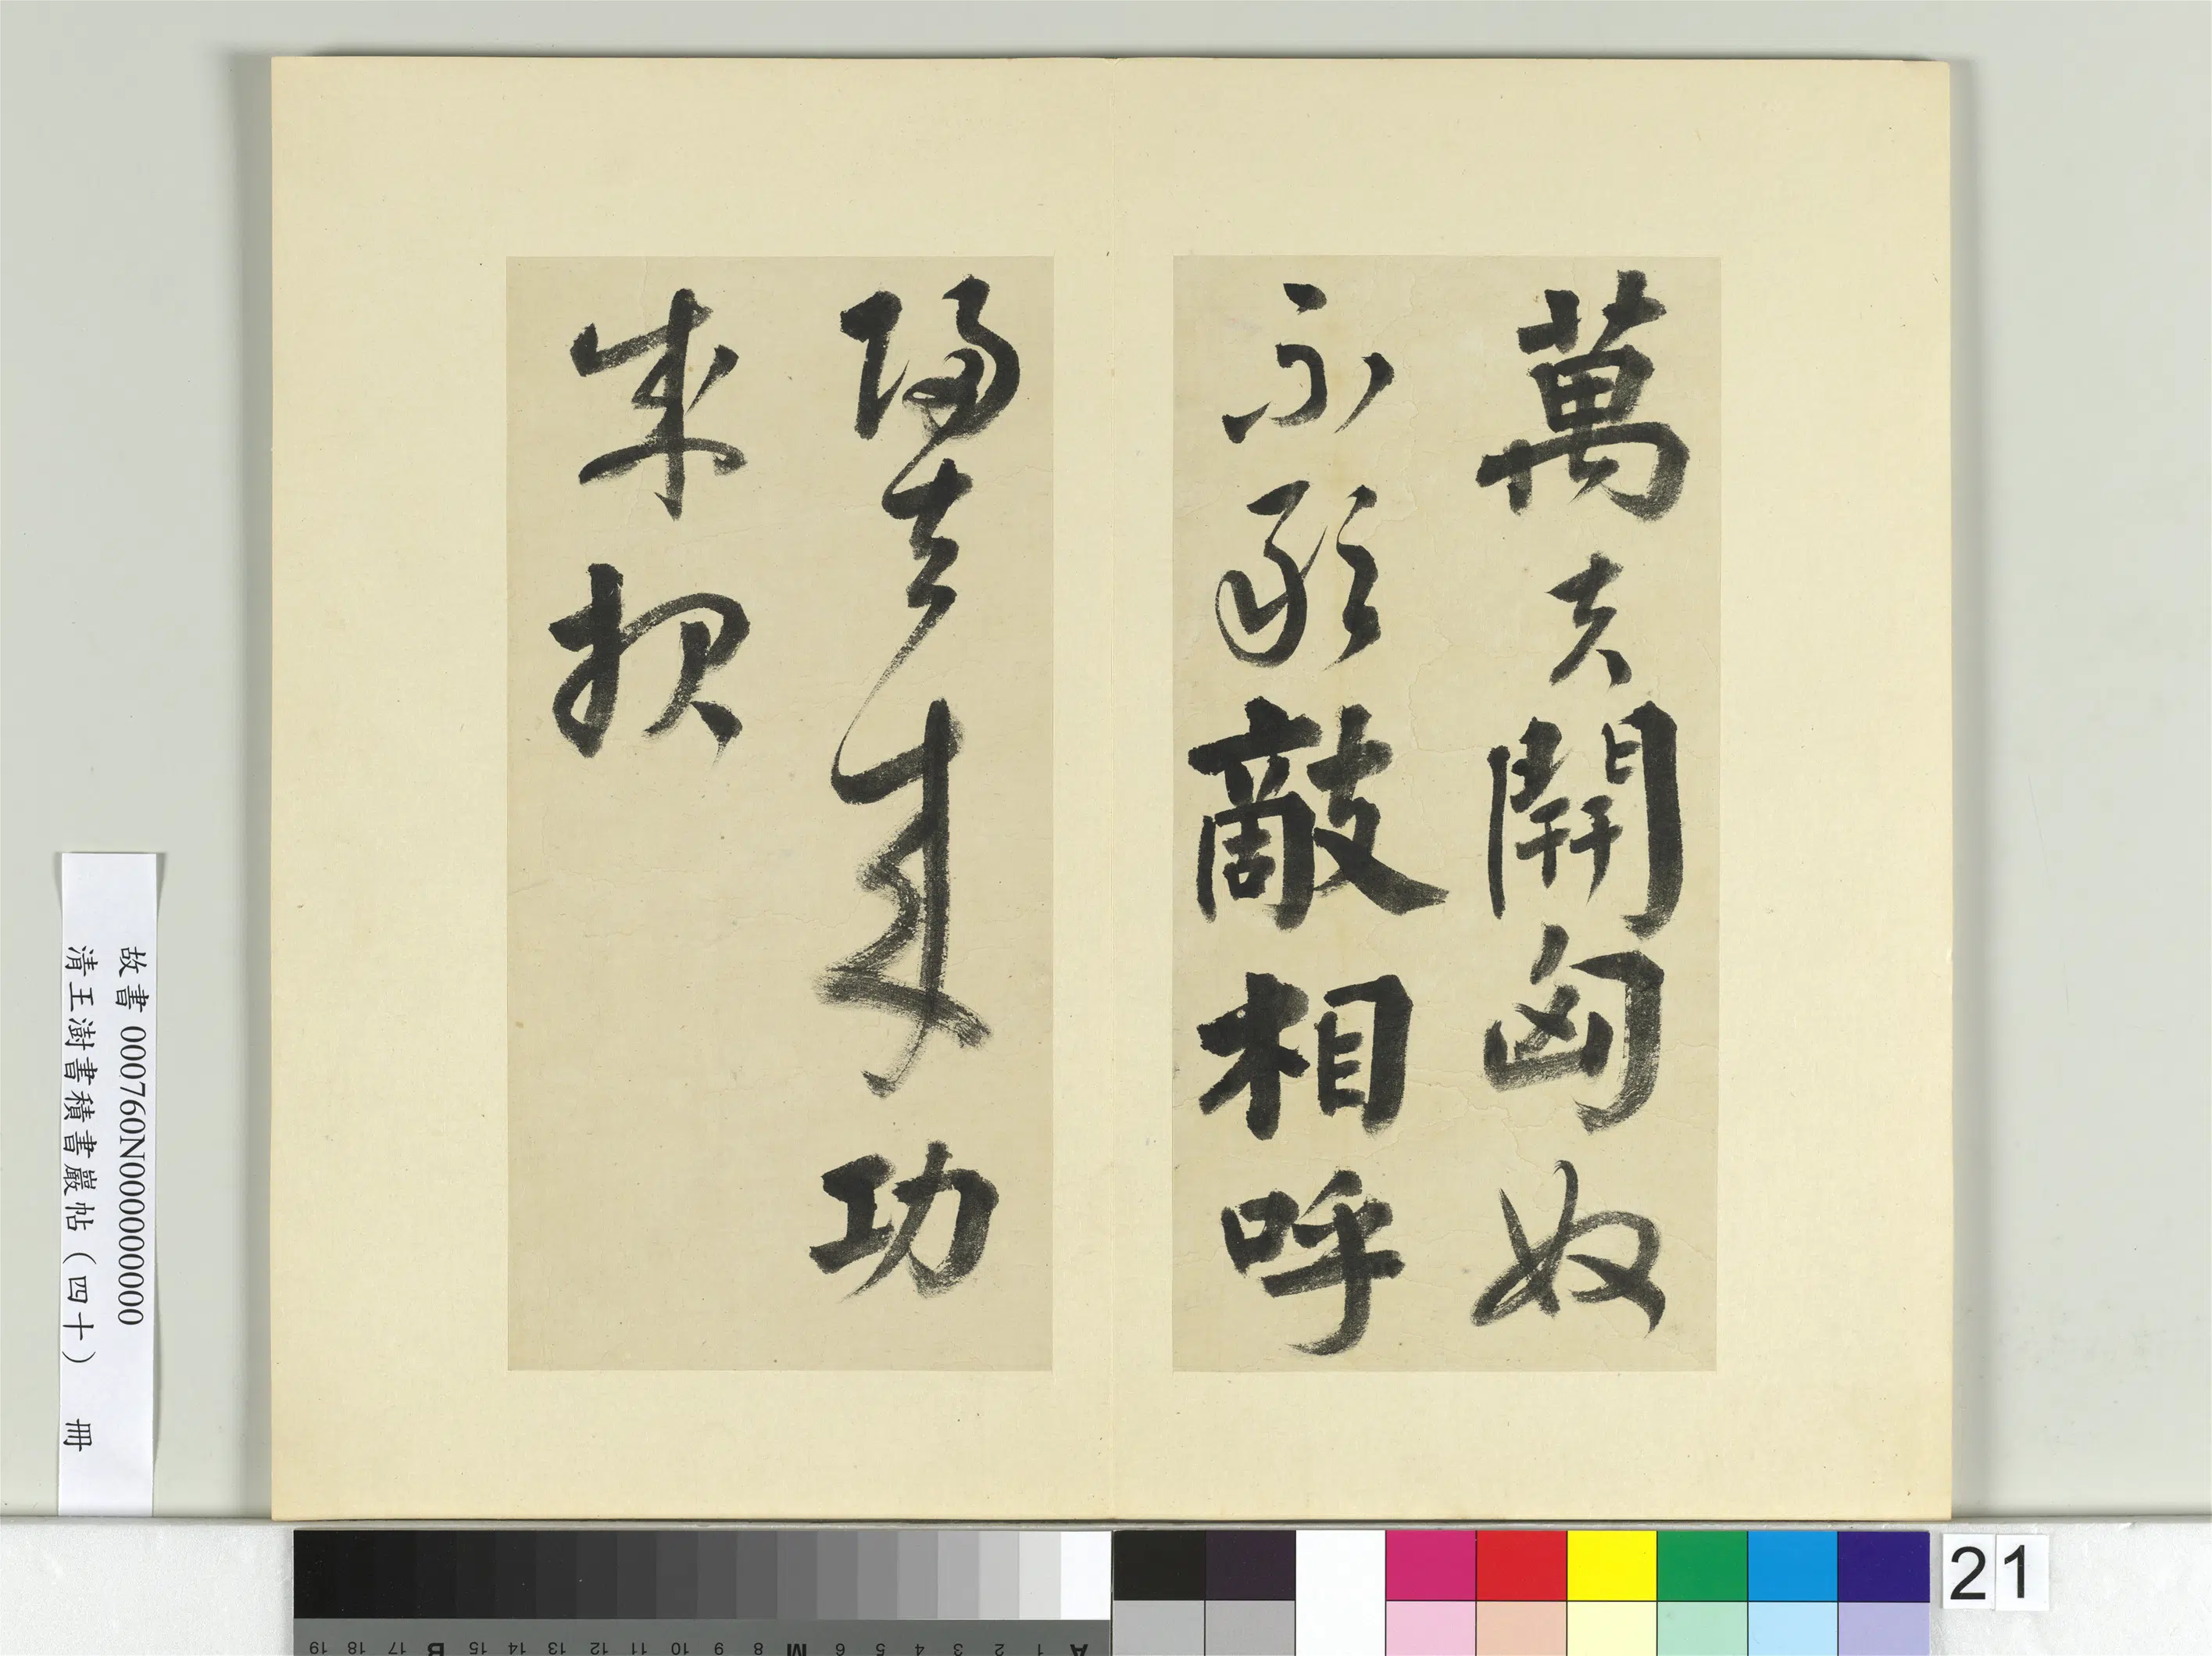 萬夫開匈奴
不敢敵相呼
歸去來功
成報
故書 000760N000000000
清王澍書積書巖帖（四十） 冊
21
A 1 2 3 4 5 6 M 8 9 10 11 12 13 14 15 B 17 18 19